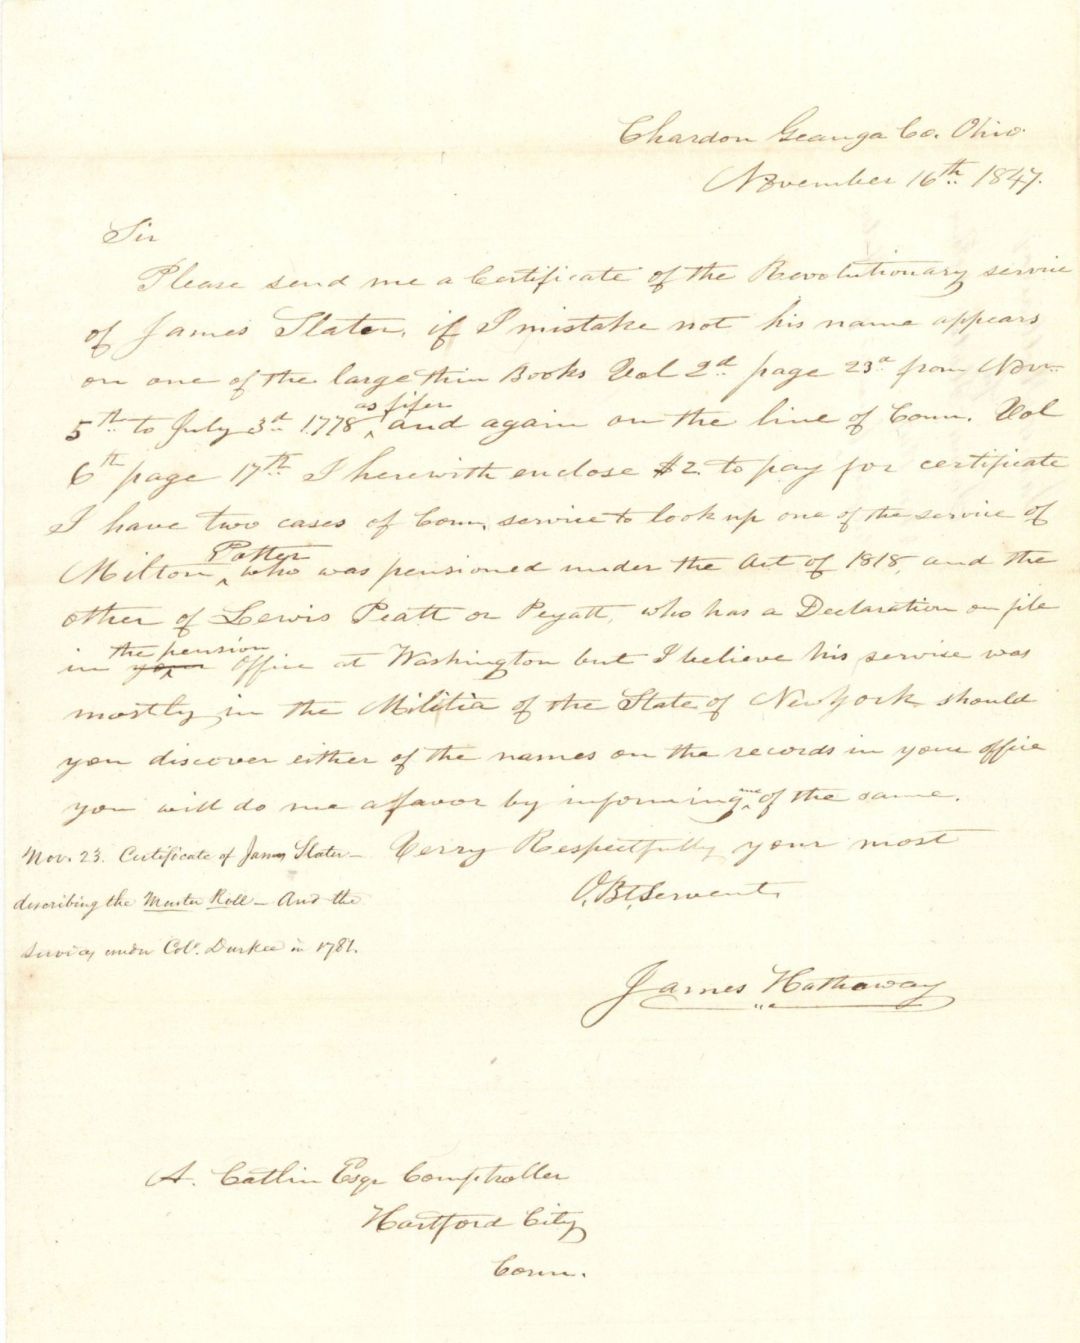 Chardon Geauga Co. Ohio
November 16th 1847.
Sir
Please send me a Certificate of the Revolutionary service
of James Slater, if I mistake not his name appears
on one of the large thin Books Vol 2d page 23d from Novr
as fifer
5th to July 3d 1778 ‸ and again on the line of Conn. Vol
6th page 17th I herewith enclose $2. to pay for certificate
I have two cases of Conn. service to look up one of the service of
Potter
Milton ‸ who was pensioned under the Act of 1818, and the
other of Lewis Peatt or Peyatt, who has a Declaration on file
the pension
in your ‸ Office at Washington but I believe his service was
mostly in the Militia of the State of New York should
you discover either of the names on the records in your office
you will do me a favor by informing ‸me of the same.
Verry Respectfully your most
O,Bt,Servent,
James Hathaway
Nov. 23. Certificate of James Slater—
describing the Muster Roll— And the
services under Colo. Durkee in 1781.
A. Catlin Esqr Comptroller
Hartford City
Conn.